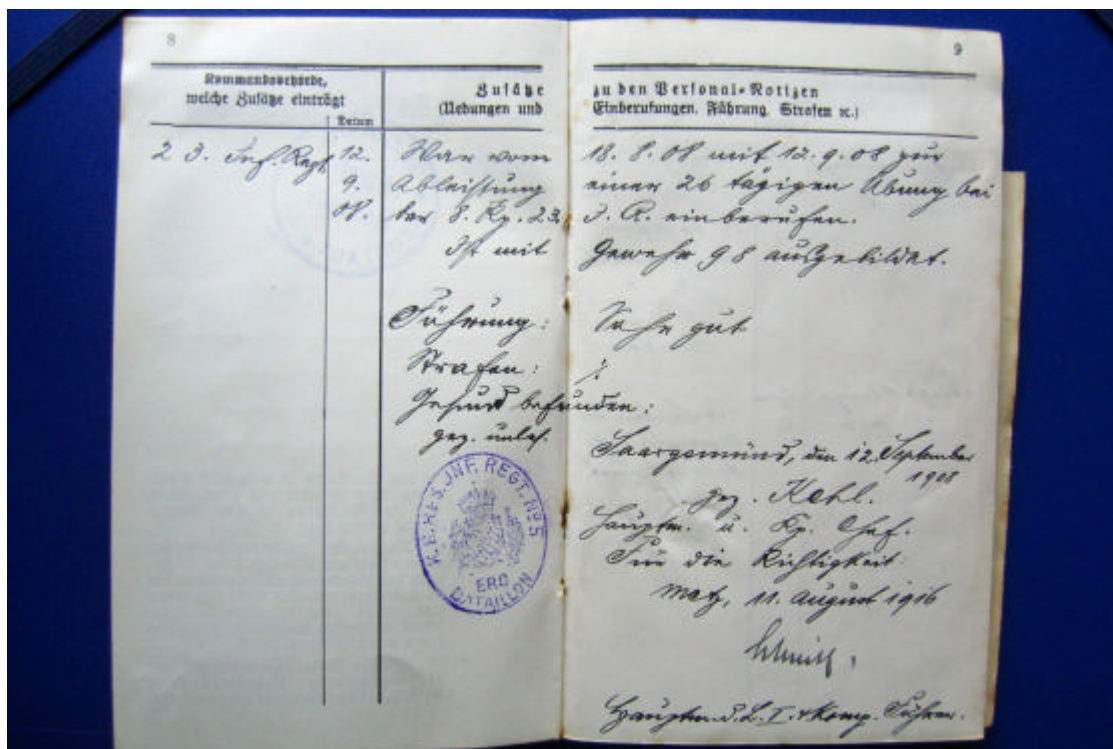 8
Kommandobehörde,
welche Zusätze einträgt
Datum
Zusätze
(Uebungen und
2 3. Inf. Regt.
12.
9.
08.
War vom
Ableistung
der 8. Kp. 23.
Ist mit
Führung:
Strafen:
Gesund befunden:
gez. unles.
K.B. RES. JNF. REGT. No 5
BATAILLON
9
zu den Personal-Notizen
Einberufungen. Führung. Strafen ꝛc.)
18. 8. 08 mit 12. 9. 08 zur
einer 26 tägigen Übung bei
J. R. einberufen.
Gewehr 98 ausgebildet.
Sehr gut
Saargemünd, den 12. September
1908
gez. Kehl.
Hauptm. u. Kp. Chef.
Für die Richtigkeit:
Metz, 11. August 1916
Hauptm. d. L. I. u. Komp. Führer.